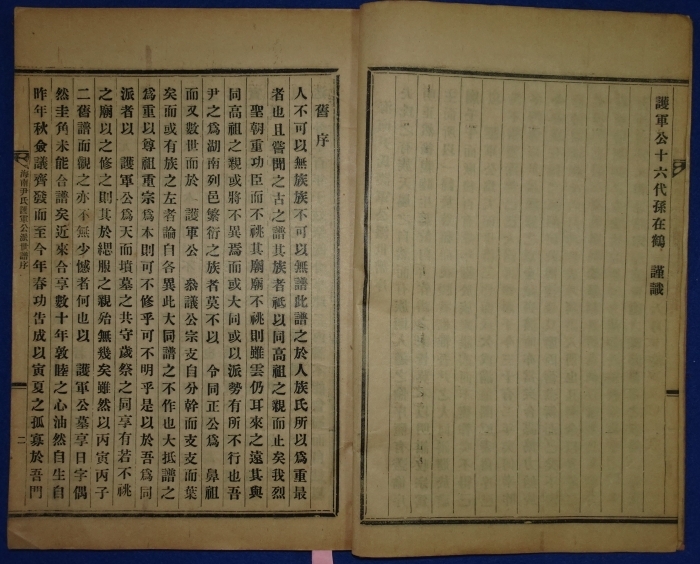 護軍公十六代孫在鶴 謹識
舊序
人不可以無族族不可以無譜此譜之於人族氏所以爲重最
者也且嘗聞之古之譜其族者祗以同高祖之親而止矣我烈
聖朝重功臣而不祧其廟廟不祧則雖雲仍耳來之遠其與
同高祖之親或將不異焉而或大同或以派勢有所不行也吾
尹之爲湖南列邑繁衍之族者莫不以 令同正公爲 鼻祖
而又數世而於 護軍公 叅議公宗支自分幹而支支而葉
矣而或有族之左者論自各異此大同譜之不作也大抵譜之
爲重以尊祖重宗爲本則可不修乎可不明乎是以於吾爲同
派者以 護軍公爲天而墳墓之共守歲祭之同享有若不祧
之廟以之修之則其於緦服之親殆無幾矣雖然以丙寅丙子
二舊譜而觀之亦不無少憾者何也以 護軍公墓享日字偶
然圭角未能合譜矣近來合享數十年敦睦之心油然自生自
昨年秋僉議齊發而至今年春功告成以寅夏之孤寡於吾門
海南尹氏護軍公派世譜序
二